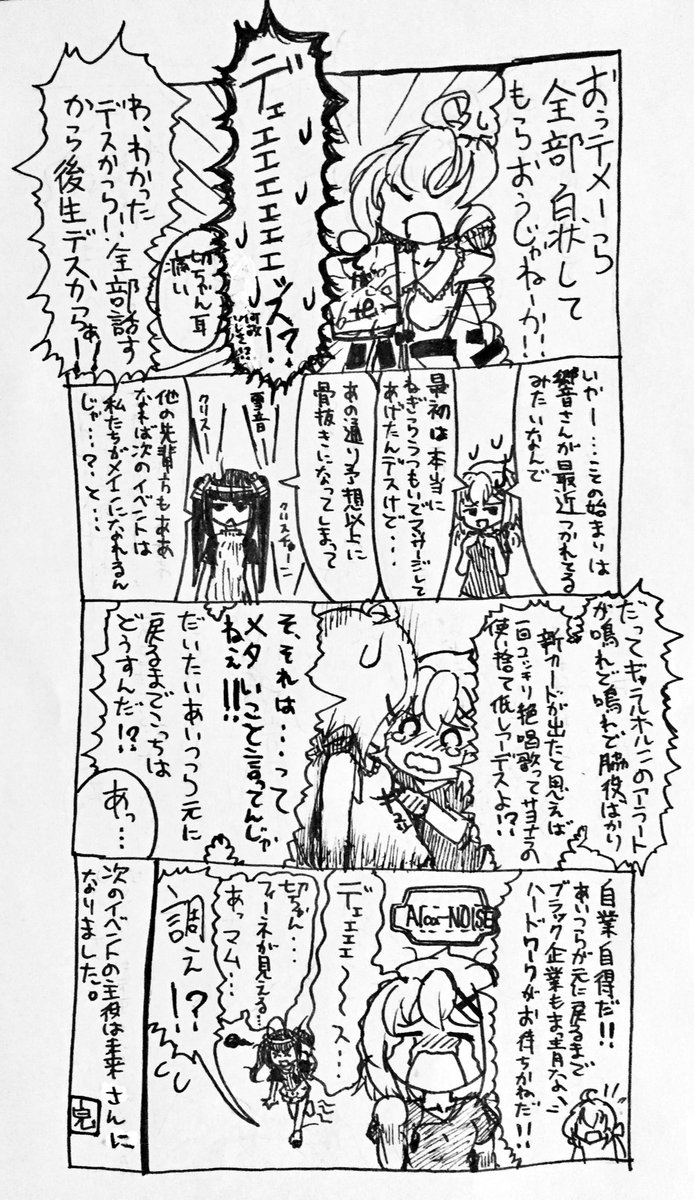 おぅテメーら
全部白状して
もらおうじゃねーか!!
デェェェェェェェッス!?
わ、わかった
デスからっ!!全部話す
から後生デスからぁー!
切ちゃん耳
痛い
いやー…この始まりは
響音さんが最近つかれてる
みたいなんで
最初は本当に
ねぎらうつもいでマッサージして
あげたんデスけど…
あの通り予想以上に
骨抜きになってしまって
雪音
クリスー
クリスチャーン
他の先輩方もああ
なれば次のイベントは
私たちがメインになれるん
じゃ…?と…
だってギャラルホルンのアラート
が鳴れど鳴れど脇役ばかり
新カードが出たと思えば
一回コッキリ絶唱歌ってサヨナラの
使い捨て低レアーデスよ!?
そ、それは…って
メタいこと言ってんじゃ
ねぇ!!
だいたいあいつら元に
戻るまでこっちは
どうすんだ!?
あっ…
自業自得だ!!
あいつらが元に戻るまで
ブラック企業もまっ青な
ハードワークがお待ちかねだ!!
Alca-NOISE
デェェェ〜ス…
切ちゃん…
フィーネが見える…
あっマム…
調ェー!?
次のイベントの主役は未来さんに
なりました。